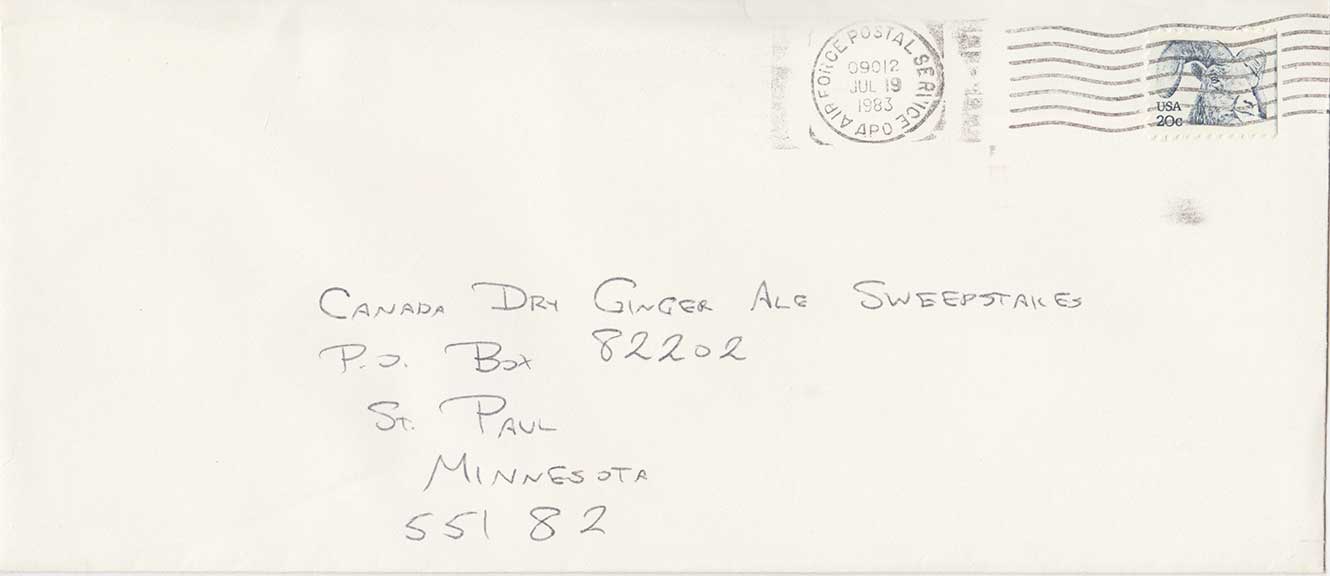 AIR FORCE POSTAL SERVICE
09012
JUL 19
1983
APO
USA
20c
CANADA DRY GINGER ALE SWEEPSTAKES
P.O. BOX 82202
ST. PAUL
MINNESOTA
55182